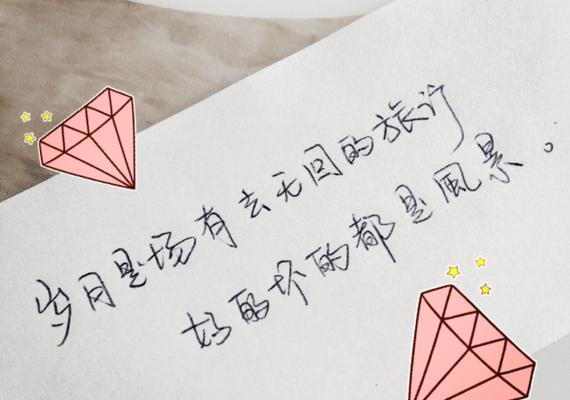 岁月是场有去无回的旅行
好的坏的都是風景。